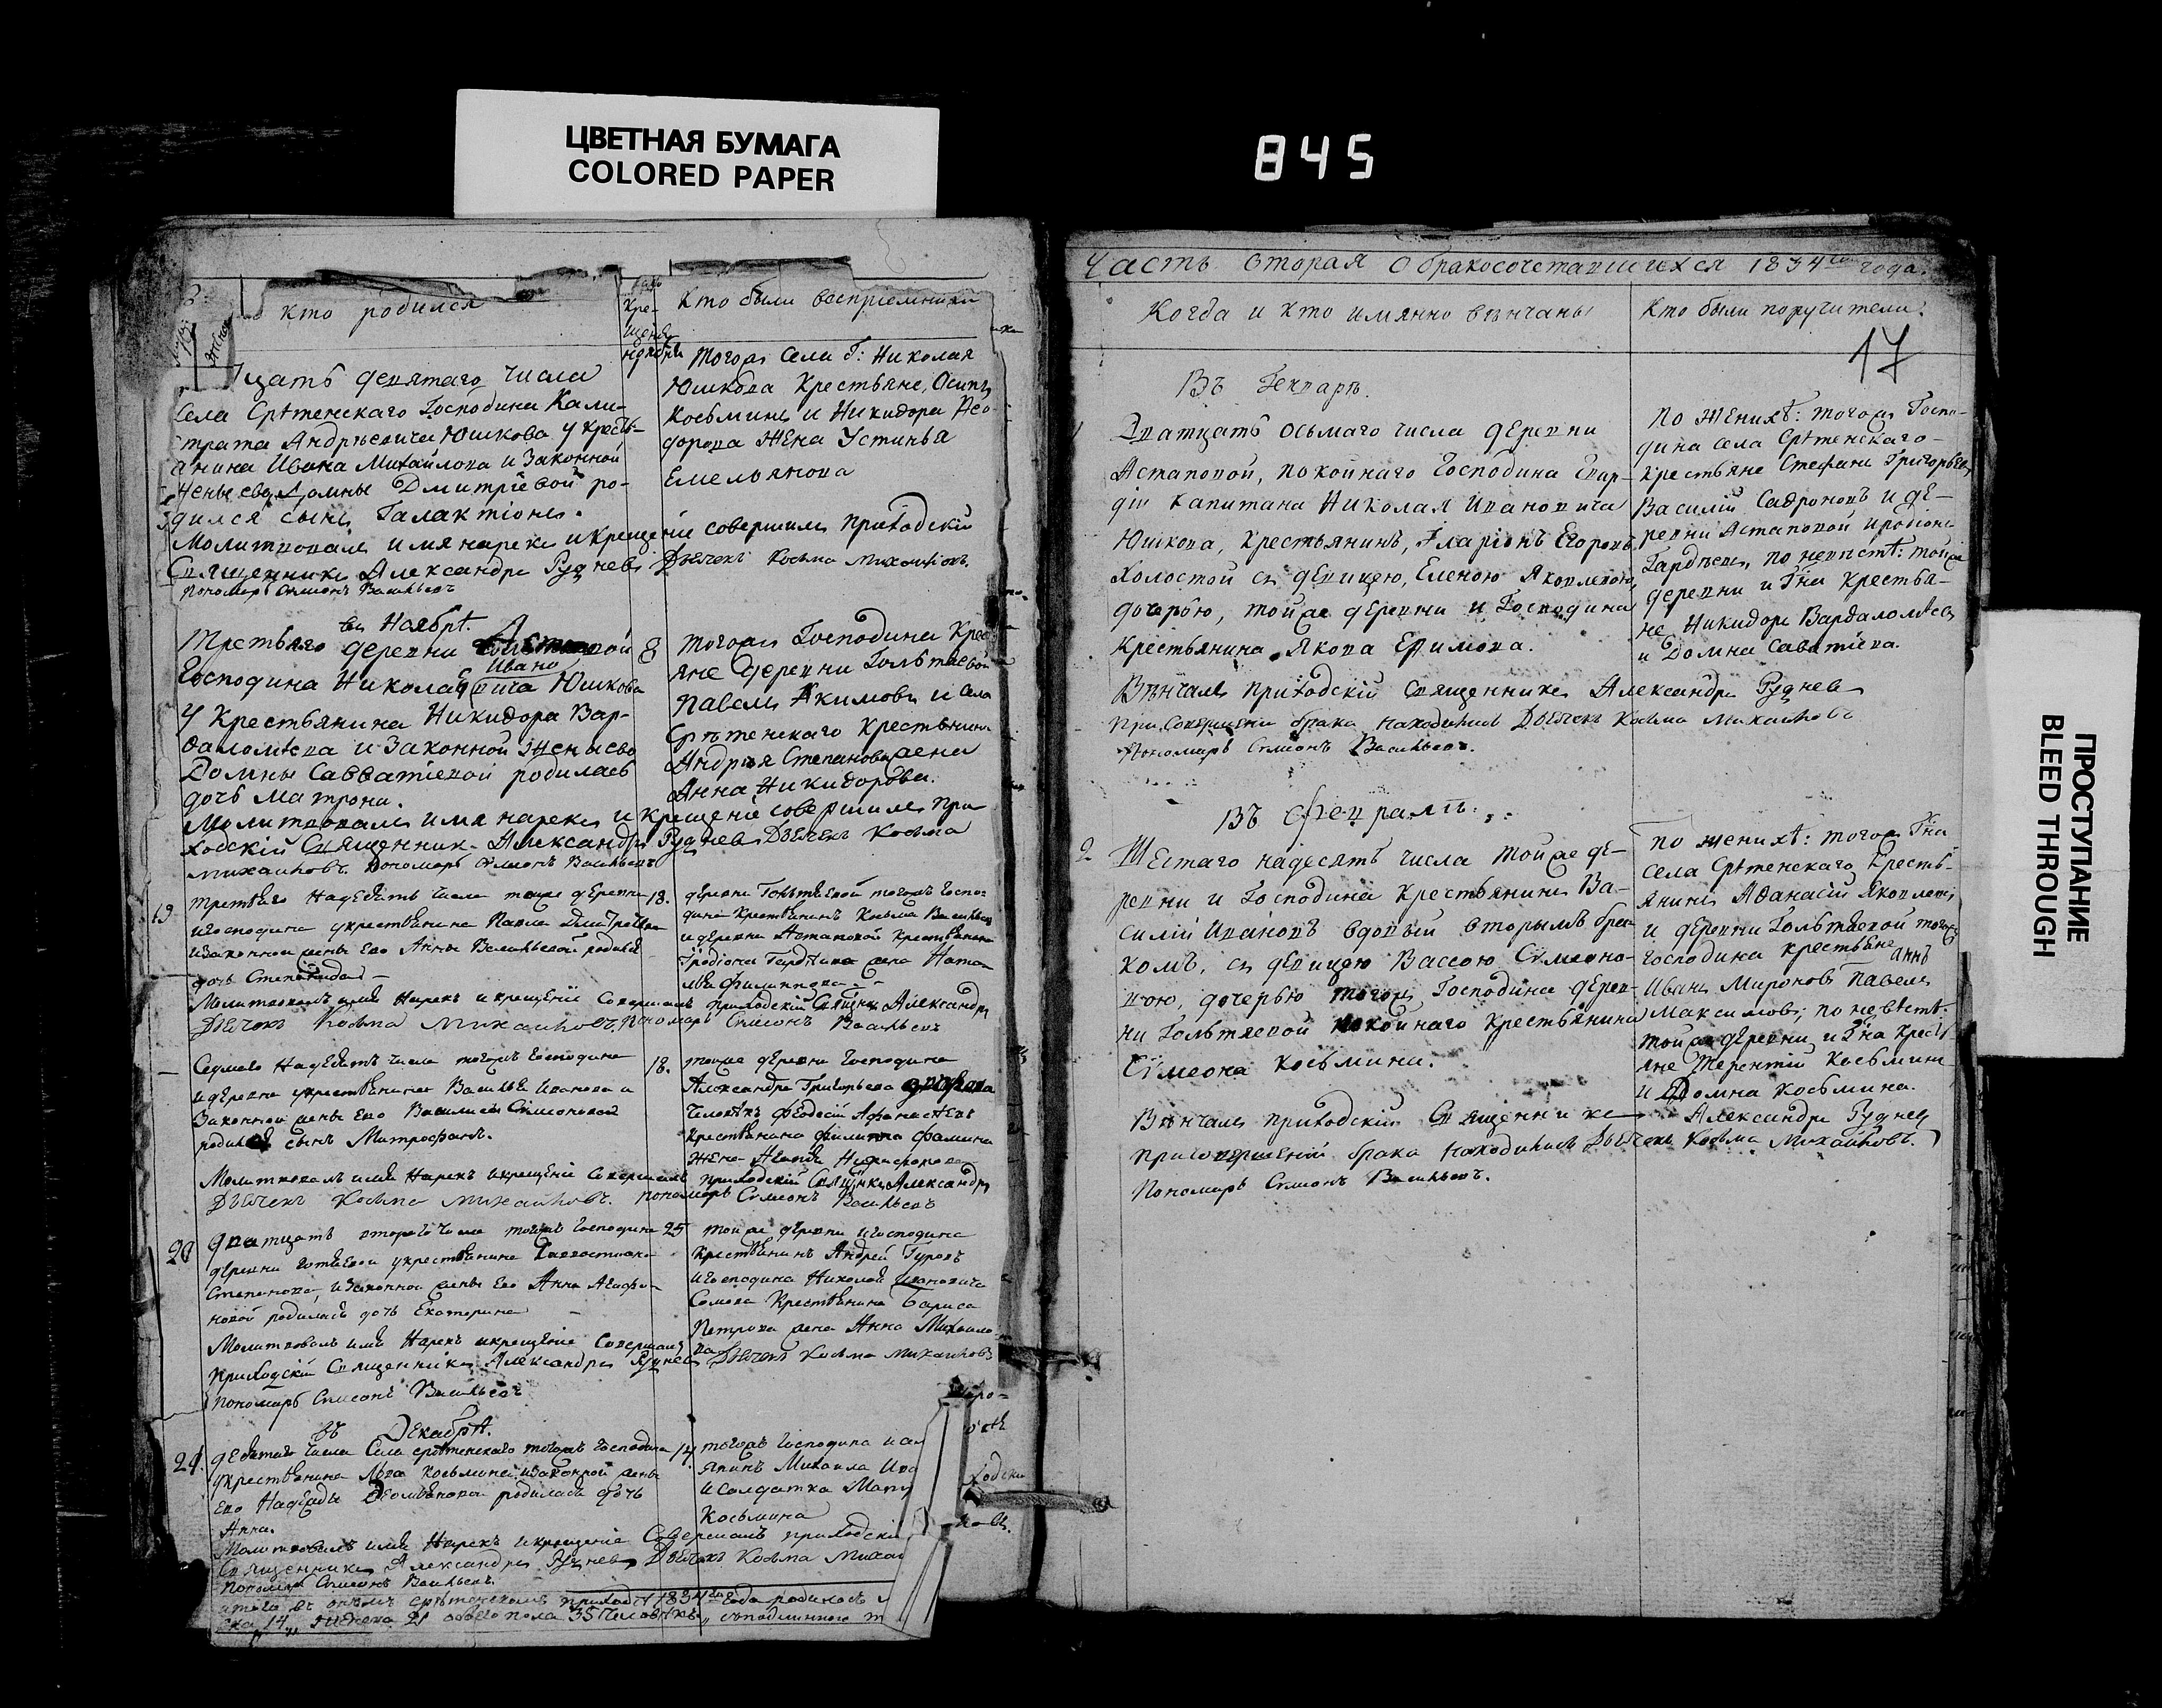 ЦВЕТНАЯ БУМАГА
COLORED PAPER
845
кто родился
Кре-
щенія
Кто были восприемники
ноября
цать девятаго числа
села Срѣтенскаго Господина Кали-
страта Андрѣевича Юшкова у кресть-
янина Ивана Михайлова и Законной
жены ево Домны Дмитріевой ро-
дился сынъ Галактіонъ.
Молитвовалъ имя нарекъ и крещеніе совершилъ приходскій
Священникъ Александръ Рудневъ Дьячекъ Косьма Михайловъ.
Пономарь Симеонъ Васильевъ
тогожъ села Г: Николая
Юшкова Крестьяне, Осипъ
Косьминъ и Никидора Ѳео-
дорова жена Устинья
Емельянова
въ Ноябрѣ.
Третьяго деревни
Господина Николая Ивано
вича Юшкова
у Крестьянина Никидора Вар-
ѳаломѣева и законной жены ево
Домны Савватіевой родилась
дочь Матрона.
Молитвовалъ имя нарекъ и крещеніе совершилъ при-
ходскій Священник Александръ Рудневъ Дьячекъ Косьма
Михайловъ. Пономарь Симеонъ Васильевъ
8
тогожъ Господина Крес
яне деревни Гольтяевой
Павелъ Акимовъ и села
Срѣтенскаго крестьянина
Андрѣя Степанова жена
Анна Никидорова.
19
третьяго Надесять числа тойже деревни
и господина у крестьянина Павла Дмитріева
и законной жены Ево Анны Васильевой родилась
дочь Степанида
Молитвовалъ имя Нарекъ и крещеніе Совершилъ приходскій Свящнкъ Александръ
Дьячекъ Косьма Михайловъ, Пономарь Симеонъ Васильевъ
13.
деревни Гольтяевой тогожъ Госпо-
дина Крестьянинъ Косьма Васильевъ
и деревни Астаповой крестьянина
Іродіона Гардѣева жена Ната-
лья Филиппова
Седмаго Надесять числа тогожъ Господина
и деревни у крестьянина Василья Иванова и
Законной жены Ево Василисы Симеоновой
родился сынъ Митрофанъ.
Молитвовалъ имя Нарекъ и крещеніе Совершилъ приходскій Свящнкъ Александръ
Дьячекъ Косьма Михайловъ. Пономарь Симеонъ Васильевъ
18.
тойже деревни Господина
Александра Григорьева
Человѣкъ Ѳеодосій Афанасьевъ
Крестьянина Филиппа Фомина
жена Агафья Никифорова
20
Дватцать втораго числа тогожъ Господина
у крестьянина
Степанова, и Законной жены Ево Анны Агафо-
новой родилась дочь Екатерина
Молитвовалъ имя Нарекъ и крещеніе Совершилъ
приходскій Священникъ Александръ Рудневъ Дьячекъ Косьма Михайловъ
Пономарь Симеонъ Васильевъ
25
тойже деревни и господина
Крестьянинъ Андрей Гуровъ
и господина Николая Ивановича
Сомова Крестьянина Бориса
Петрова жена Анна Михайло-
ва
въ Декабрѣ.
21.
девятаго числа Села срѣтенскаго тогожъ Господина
у крестьянина Льва Косьмина и законной жены
Ево Надежды родилась дочь
Анна.
Молитвовалъ имя Нарекъ и крещеніе Совершилъ приходскі
Священникъ Александръ Рудневъ Дьячекъ Косьма Михай
Пономарь Симеонъ Васильевъ.
14.
тогожъ Господина
янинъ Михаила
и солдатка
Косьмина
итого въ ономъ срѣтенскомъ приходѣ 1834го Года родилось
14, женска 21 обоего пола 35 Человѣкъ
Часть вторая о бракосочетавшихся 1834го года.
Когда и кто имянно вѣнчаны
Кто были поручители.
17
Въ Генварѣ.
Дватцать осьмаго числа деревни
Астаповой, покойнаго Господина Гвар-
діи капитана Николая Ивановича
Юшкова, крестьянинъ, Іларіонъ Егоровъ
холостой съ дѣвицею, Еленою Яковлевою
дочерью, тойже деревни и Господина
Крестьянина Якова Ефимова.
Вѣнчалъ приходскій Священникъ Александръ Рудневъ
при совершеніи брака находились Дьячекъ Косьма Михайловъ
Пономарь Симеонъ Васильевъ.
По женихѣ: тогожъ Госпо-
дина села Срѣтенскаго
Крестьяне Стефанъ Григорьевъ
Василій Садроновъ и де-
ревни Астаповой Иродіонъ
Гардѣевъ, по невѣстѣ: тойже
деревни и Гна Крестья-
не Никидоръ Варѳаломѣевъ
и Домна Саватіева.
Въ Февралѣ.
2
Шестаго надесять числа тойже де-
ревни и Господина крестьянинъ Ва-
силій Ивановъ вдовый вторымъ бра-
комъ, съ дѣвицею Вассою Симеоно-
вою, дочерью тогожъ Господина дерев-
ни Гольтяевой покойнаго крестьянина
Симеона Косьмина.
Вѣнчалъ приходскій Священникъ Александръ Рудневъ
при совершеніи брака находились Дьячекъ Косьма Михайловъ.
Пономарь Симеонъ Васильевъ.
По женихѣ: тогожъ Гна
села Срѣтенскаго Кресть-
янинъ Аѳанасій Яковлевъ
и деревни Гольтяевой тогожъ
Господина крестьяне
Иванъ Мироновъ Павелъ
Максимовъ; по невѣстѣ:
тойже деревни и Гна Кресть-
яне Терентій Косьминъ
и Домна Косьмина.
ПРОСТУПАНИЕ
BLEED THROUGH